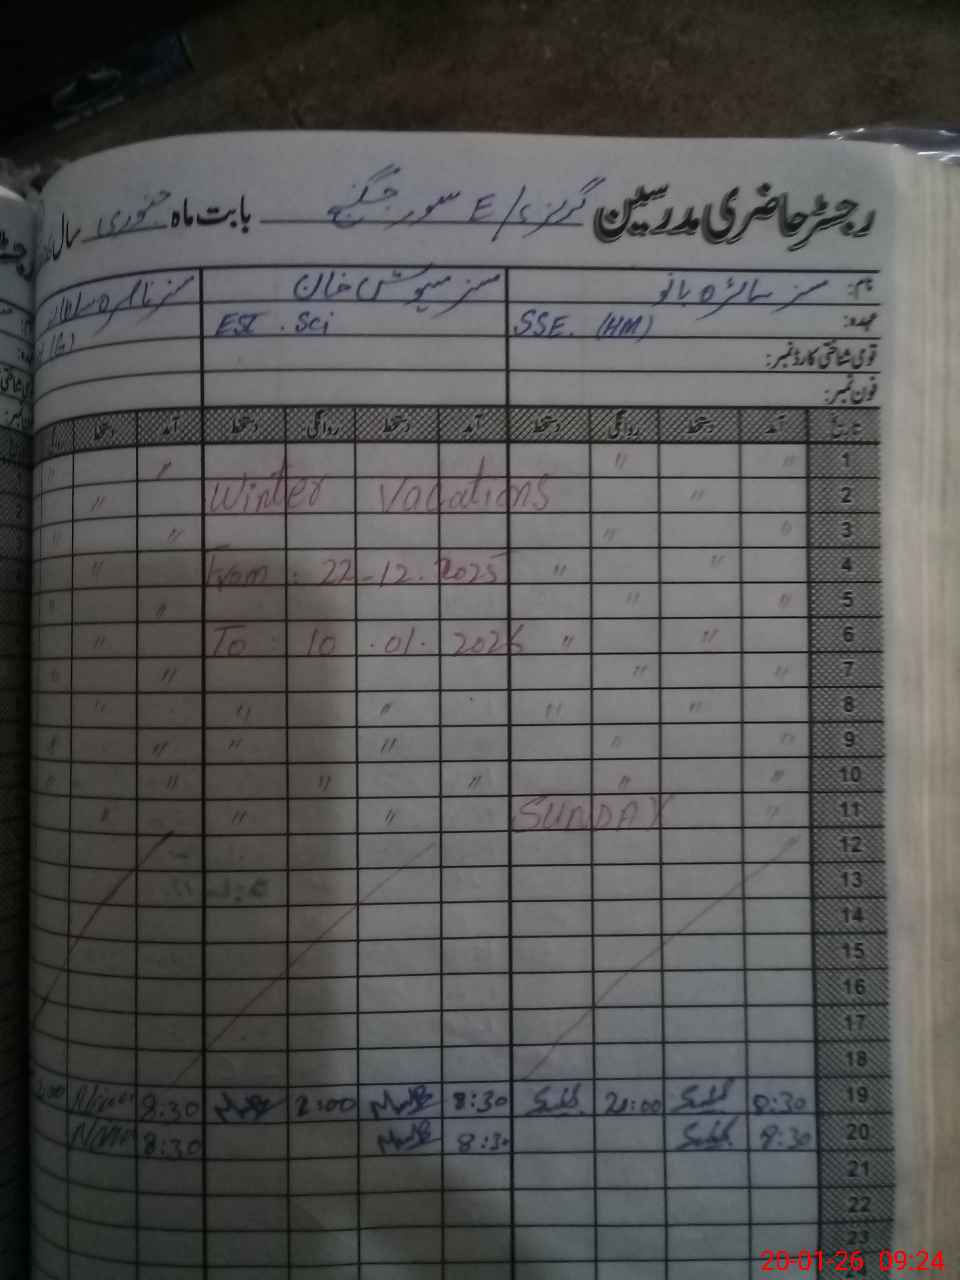 رجسٹر حاضری مدرسین گرلز E/S سور جگنج بابت ماہ جنوری سال
نام: مسز سائرہ بانو مسز سیوش خان مسز
عہدہ: SSE. (HM) EST. Sci
قومی شناختی کارڈ نمبر:
فون نمبر:
تاریخ آمد دستخط روانگی دستخط آمد دستخط روانگی دستخط آمد دستخط
1 〃 〃 〃 〃
2 〃 Winter Vacations 〃
3 〃 〃 〃 〃
4 〃 〃 From : 22-12-2025 〃
5 〃 〃 〃 〃
6 〃 〃 To : 10 .01. 2026 〃
7 〃 〃 〃 〃
8 〃 〃 〃 〃 〃
9 〃 〃 〃 〃 〃 〃
10 〃 〃 〃 〃 〃 〃
11 〃 SUNDAY 〃 〃 〃
12
13
14
15
16
17
18
19 8:30 2:00 8:30 2:00 8:30 2:00
20 8:30 8:30 8:30
21
22
23
20-01-26 09:24